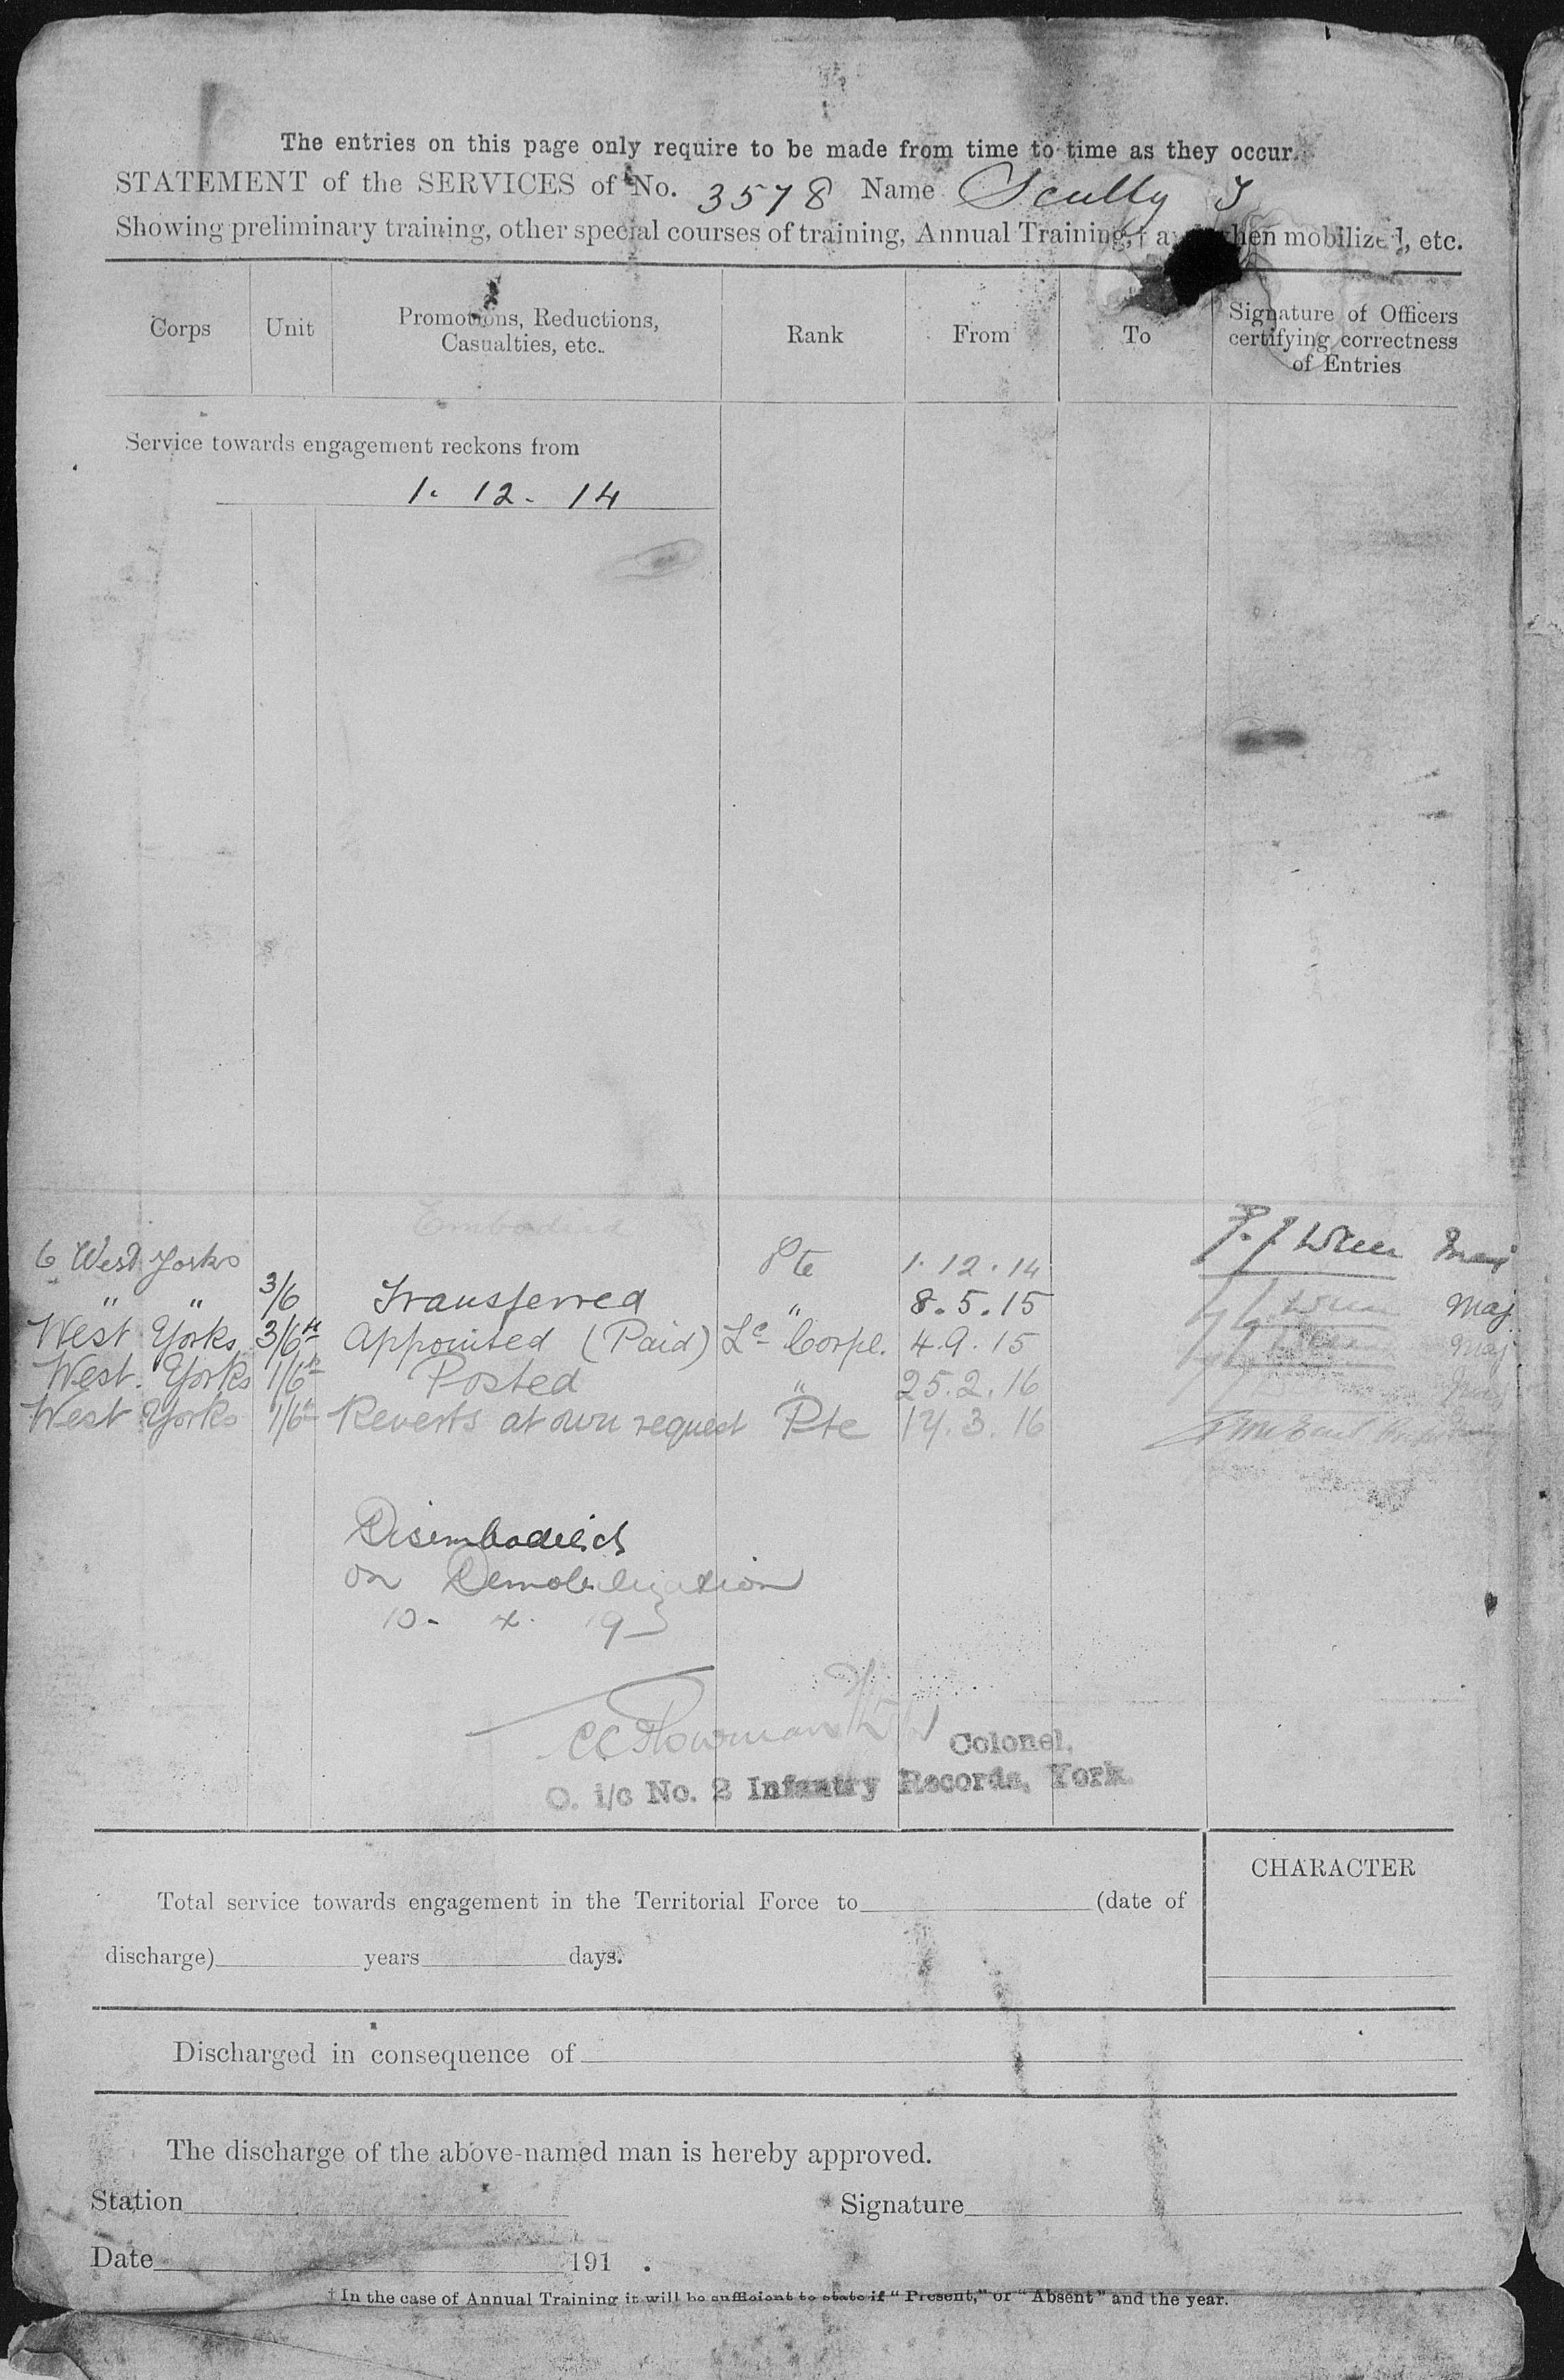 The entries on this page only require to be made from time to time as they occur.
STATEMENT of the SERVICES of No. 3578 Name Scully J
Showing preliminary training, other special courses of training, Annual Training,† and when mobilized, etc.
Corps Unit Promotions, Reductions, Casualties, etc. Rank From To Signature of Officers certifying correctness of Entries
Service towards engagement reckons from
1. 12. 14
Embodied
6 West Yorks Pte 1.12.14
" " 3/6 Transferred " 8.5.15 Maj
West Yorks 3/6th Appointed (Paid) Lc Corpl. 4.9.15 Maj
West. Yorks 1/6th Posted " 25.2.16
West Yorks 1/6th Reverts at own request Pte 14.3.16
Disembodied
on Demobilization
10- 4. 19
Colonel,
O. i/c No. 2 Infantry Records, York.
CHARACTER
Total service towards engagement in the Territorial Force to (date of
discharge) years days.
Discharged in consequence of
The discharge of the above-named man is hereby approved.
Station Signature
Date 191 .
† In the case of Annual Training it will be sufficient to state if "Present," or "Absent" and the year.